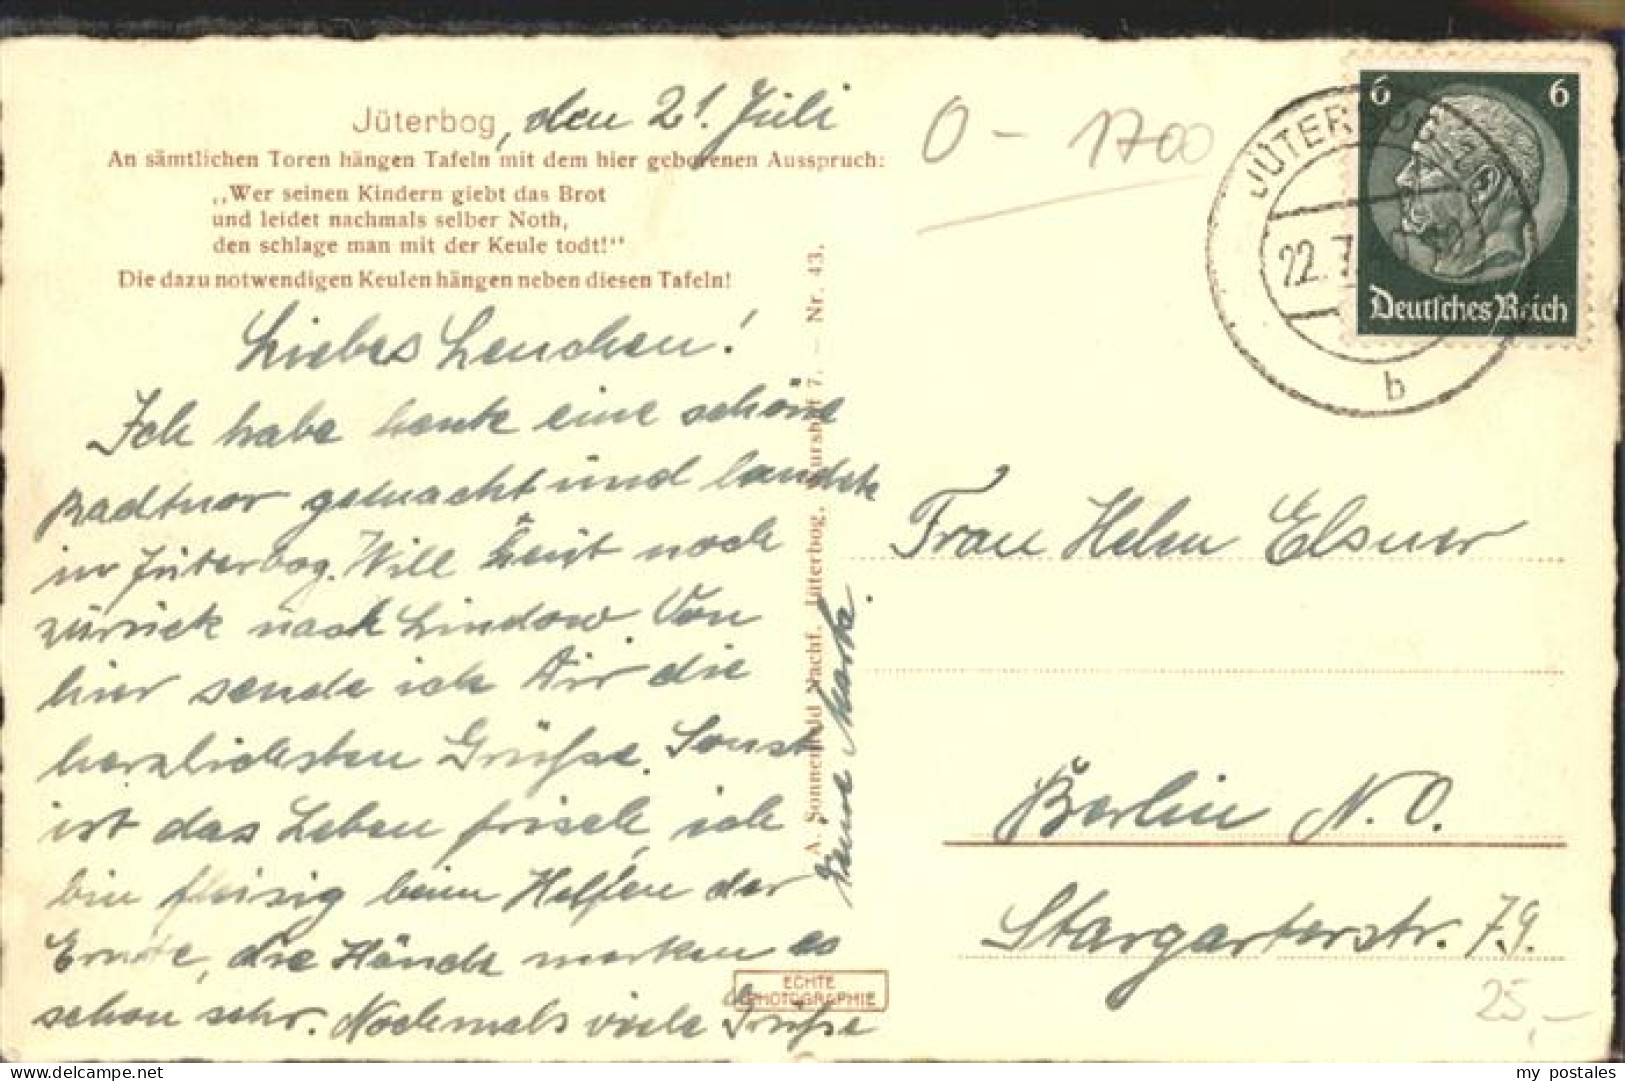 Jüterbog, den 21. Juli
An sämtlichen Toren hängen Tafeln mit dem hier geborenen Ausspruch:
„Wer seinen Kindern giebt das Brot
und leidet nachmals selber Noth,
den schlage man mit der Keule todt!“
Die dazu notwendigen Keulen hängen neben diesen Tafeln!
Liebes Lenchen!
Ich habe heute eine schöne
Radtuor gemacht und landete
in Jüterbog. Will heut noch
zurück nach Lindow. Von
hier sende ich Dir die
herzlichsten Grüße. Sonst
ist das Leben frisch, ich
bin fleisig beim Helfen der
Ernte, die Hände merken es
schon sehr. Nochmals viele Grüße
Deine
A. Sonnenfeld Nachf. Jüterbog, 7. — Nr. 43.
ECHTE
PHOTOGRAPHIE
0 - 1700
JÜTERBOG
22.7
b
6 6
Deutsches Reich
Frau Helen Elsner
Berlin N.O.
Stargarterstr. 79.
25,-
www.delcampe.net
my_postales